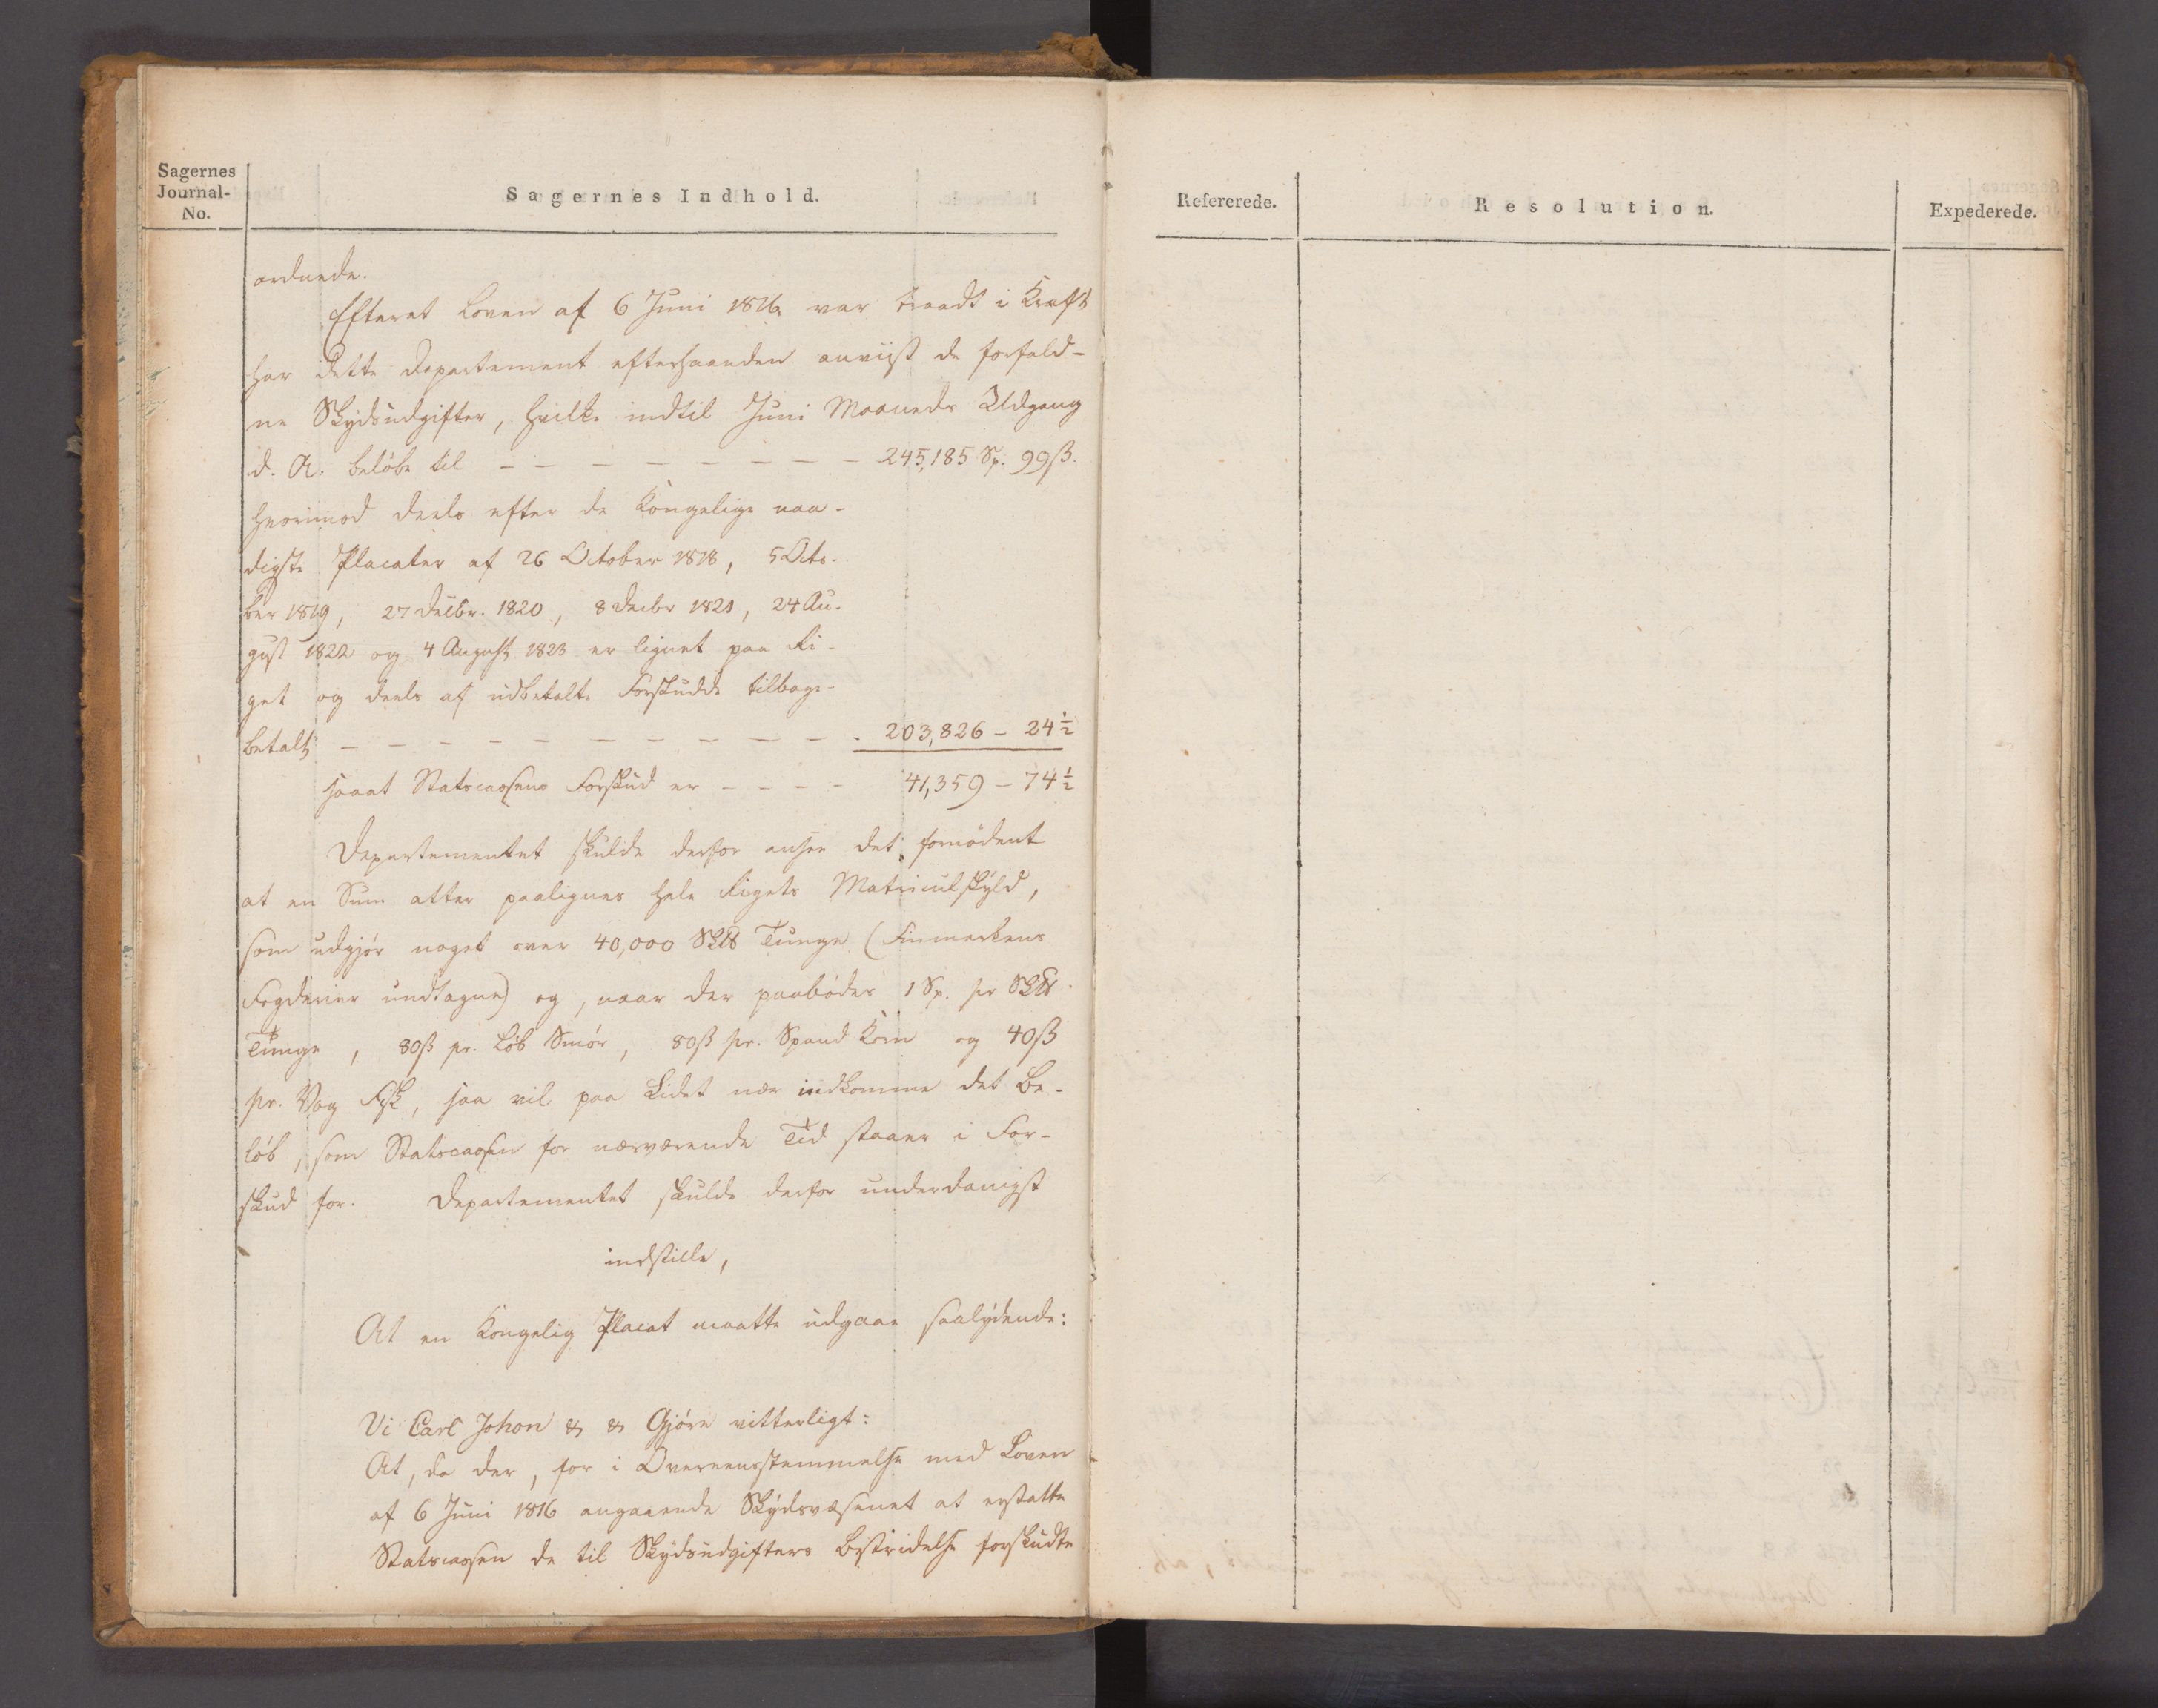 Sagernes
Journal-
No.
Sagernes Indhold.
ordnede.
Efterat Loven af 6 Juni 1816 var traadt i Kraft
har dette Departement efterhaanden anviist de forfald-
ne Skydsudgifter, hvilke indtil Juni Maaneds Udgang
d. A. beløbe til — — — — — — — 245,185 Sp. 99ß.
hvorimod deels efter de Kongelige naa-
digste Placater af 26 October 1818, 5 Octo-
ber 1819, 27 Decbr. 1820, 8 Decbr 1821, 24 Au-
gust 1822 og 4 August 1823 er lignet paa Ri-
get og deels af udbetalte Forskudde tilbage-
betalt — — — — — — — — — — 203,826 - 24½
saaat Statscassens Forskud er — — — — 41,359 - 74½
Departementet skulde derfor ansee det fornødent
at en Sum atter paalignes hele Rigets Matriculskyld,
som udgjør noget over 40,000 Sk℔ Tunge (Finmarkens
Fogderier undtagne) og, naar der paabødes 1 Sp. pr Sk℔.
Tunge, 80ß pr. Løb Smør, 80ß pr. Spand Korn og 40ß
pr. Vog Fisk, saa vil paa Lidet nær indkomme det Be-
løb, som Statscassen for nærværende Tid staaer i For-
skud for. Departementet skulde derfor underdanigst
indstille,
At en Kongelig Placat maatte udgaae saalydende:
Vi Carl Johan & & Gjøre vitterligt:
At, da der, for i Overeensstemmelse med Loven
af 6 Juni 1816 angaaende Skydsvæsenet at erstatte
Statscassen de til Skydsudgifters Bestridelse forskudte
Refererede.
Resolution.
Expederede.